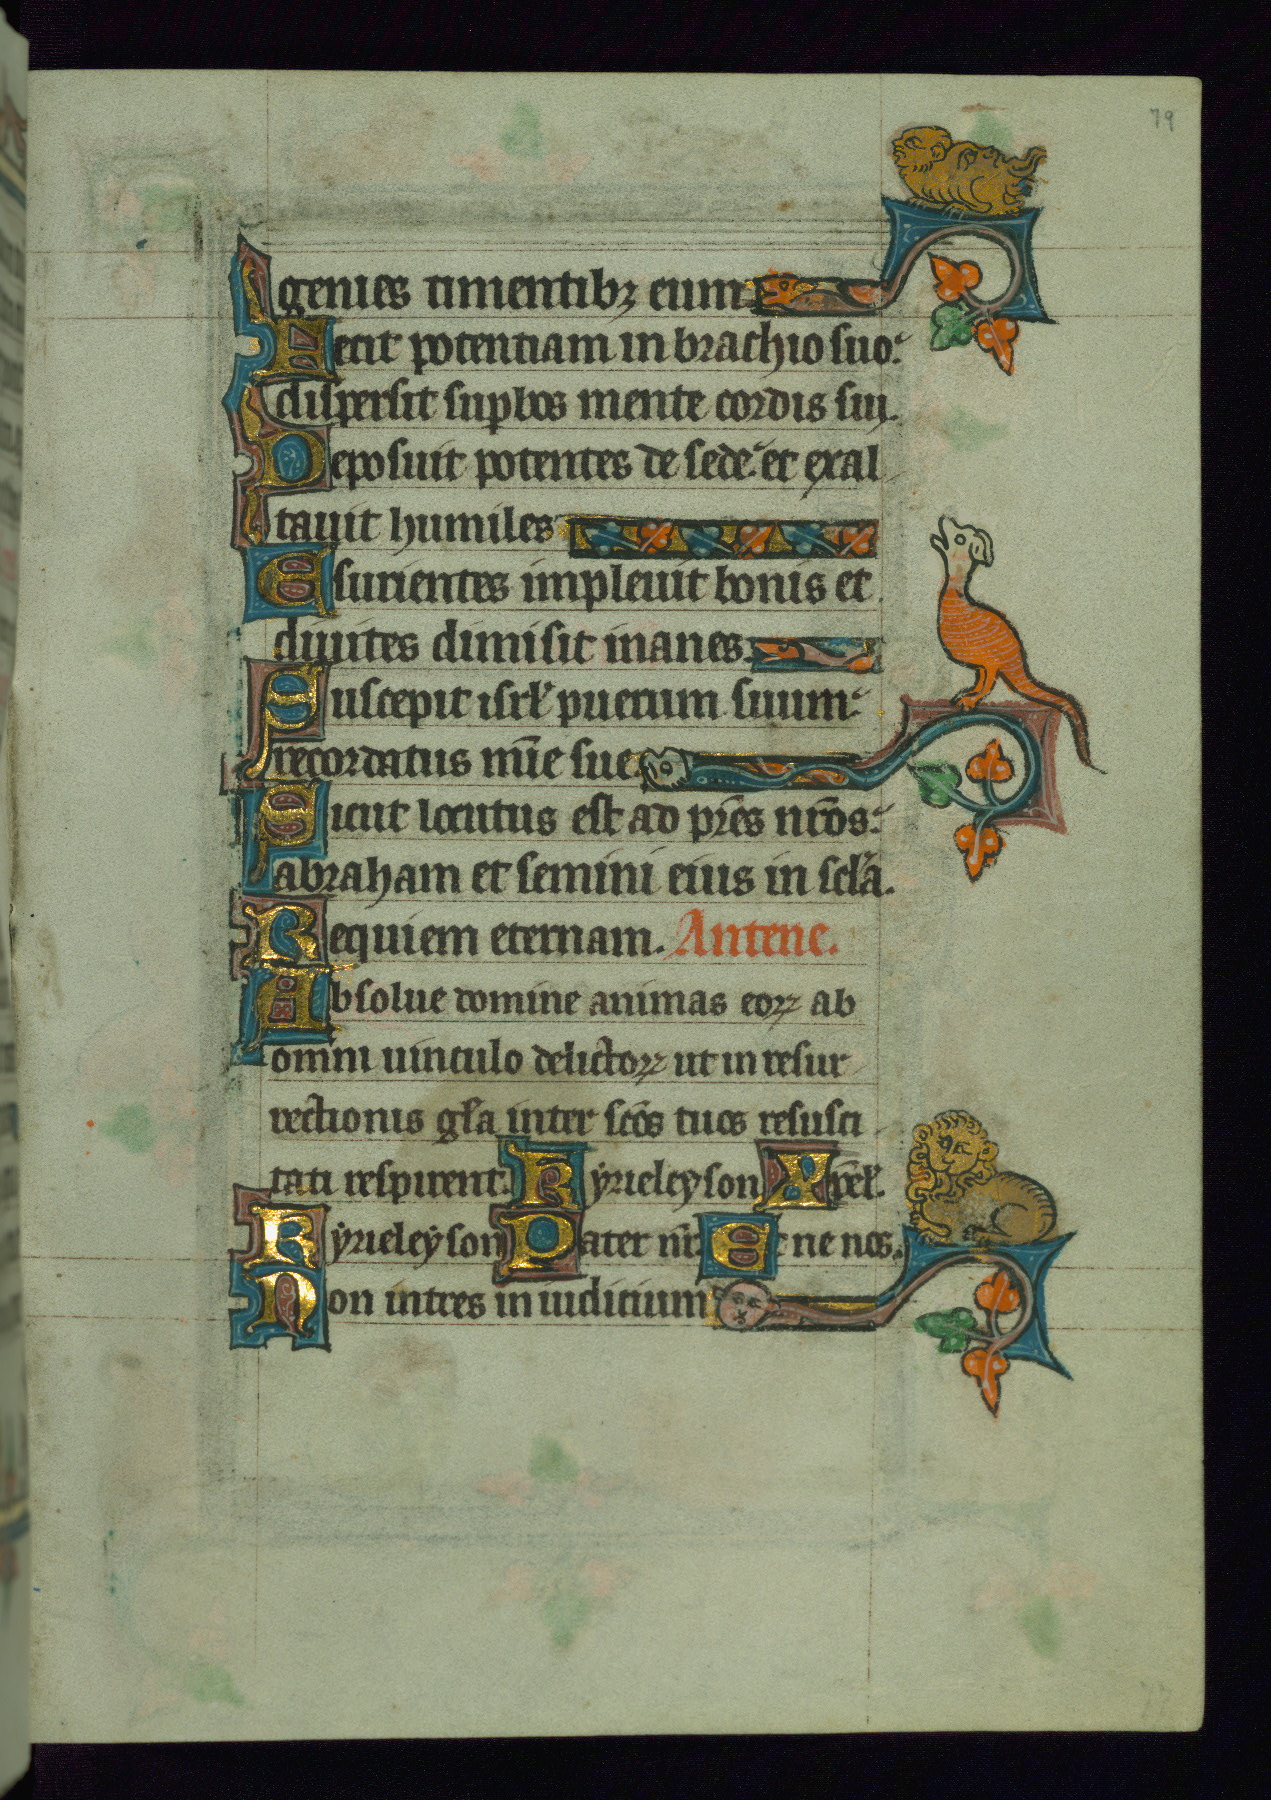 79
genies timentibꝫ eum
Fecit potentiam in brachio suo.
dispersit supbos mente cordis sui.
Deposuit potentes de sede. et exal
tauit humiles
Esurientes impleuit bonis et
diuites dimisit inanes.
Suscepit isrl̄ puerum suum.
recordatus mīe sue
Sicut locutus est ad pr̄es nr̄os.
abraham et semini eius in sc̄la.
Requiem eternam. Antene.
Absolue domine animas eoꝝ ab
omni uinculo delictoꝝ ut in resur
rectionis gl̄a inter sc̄os tuos resusci
tati respirent. Kyrieleyson Xp̄el̄.
Kyrieleyson Pater nr̄. Et ne nos.
Non intres in iudicium